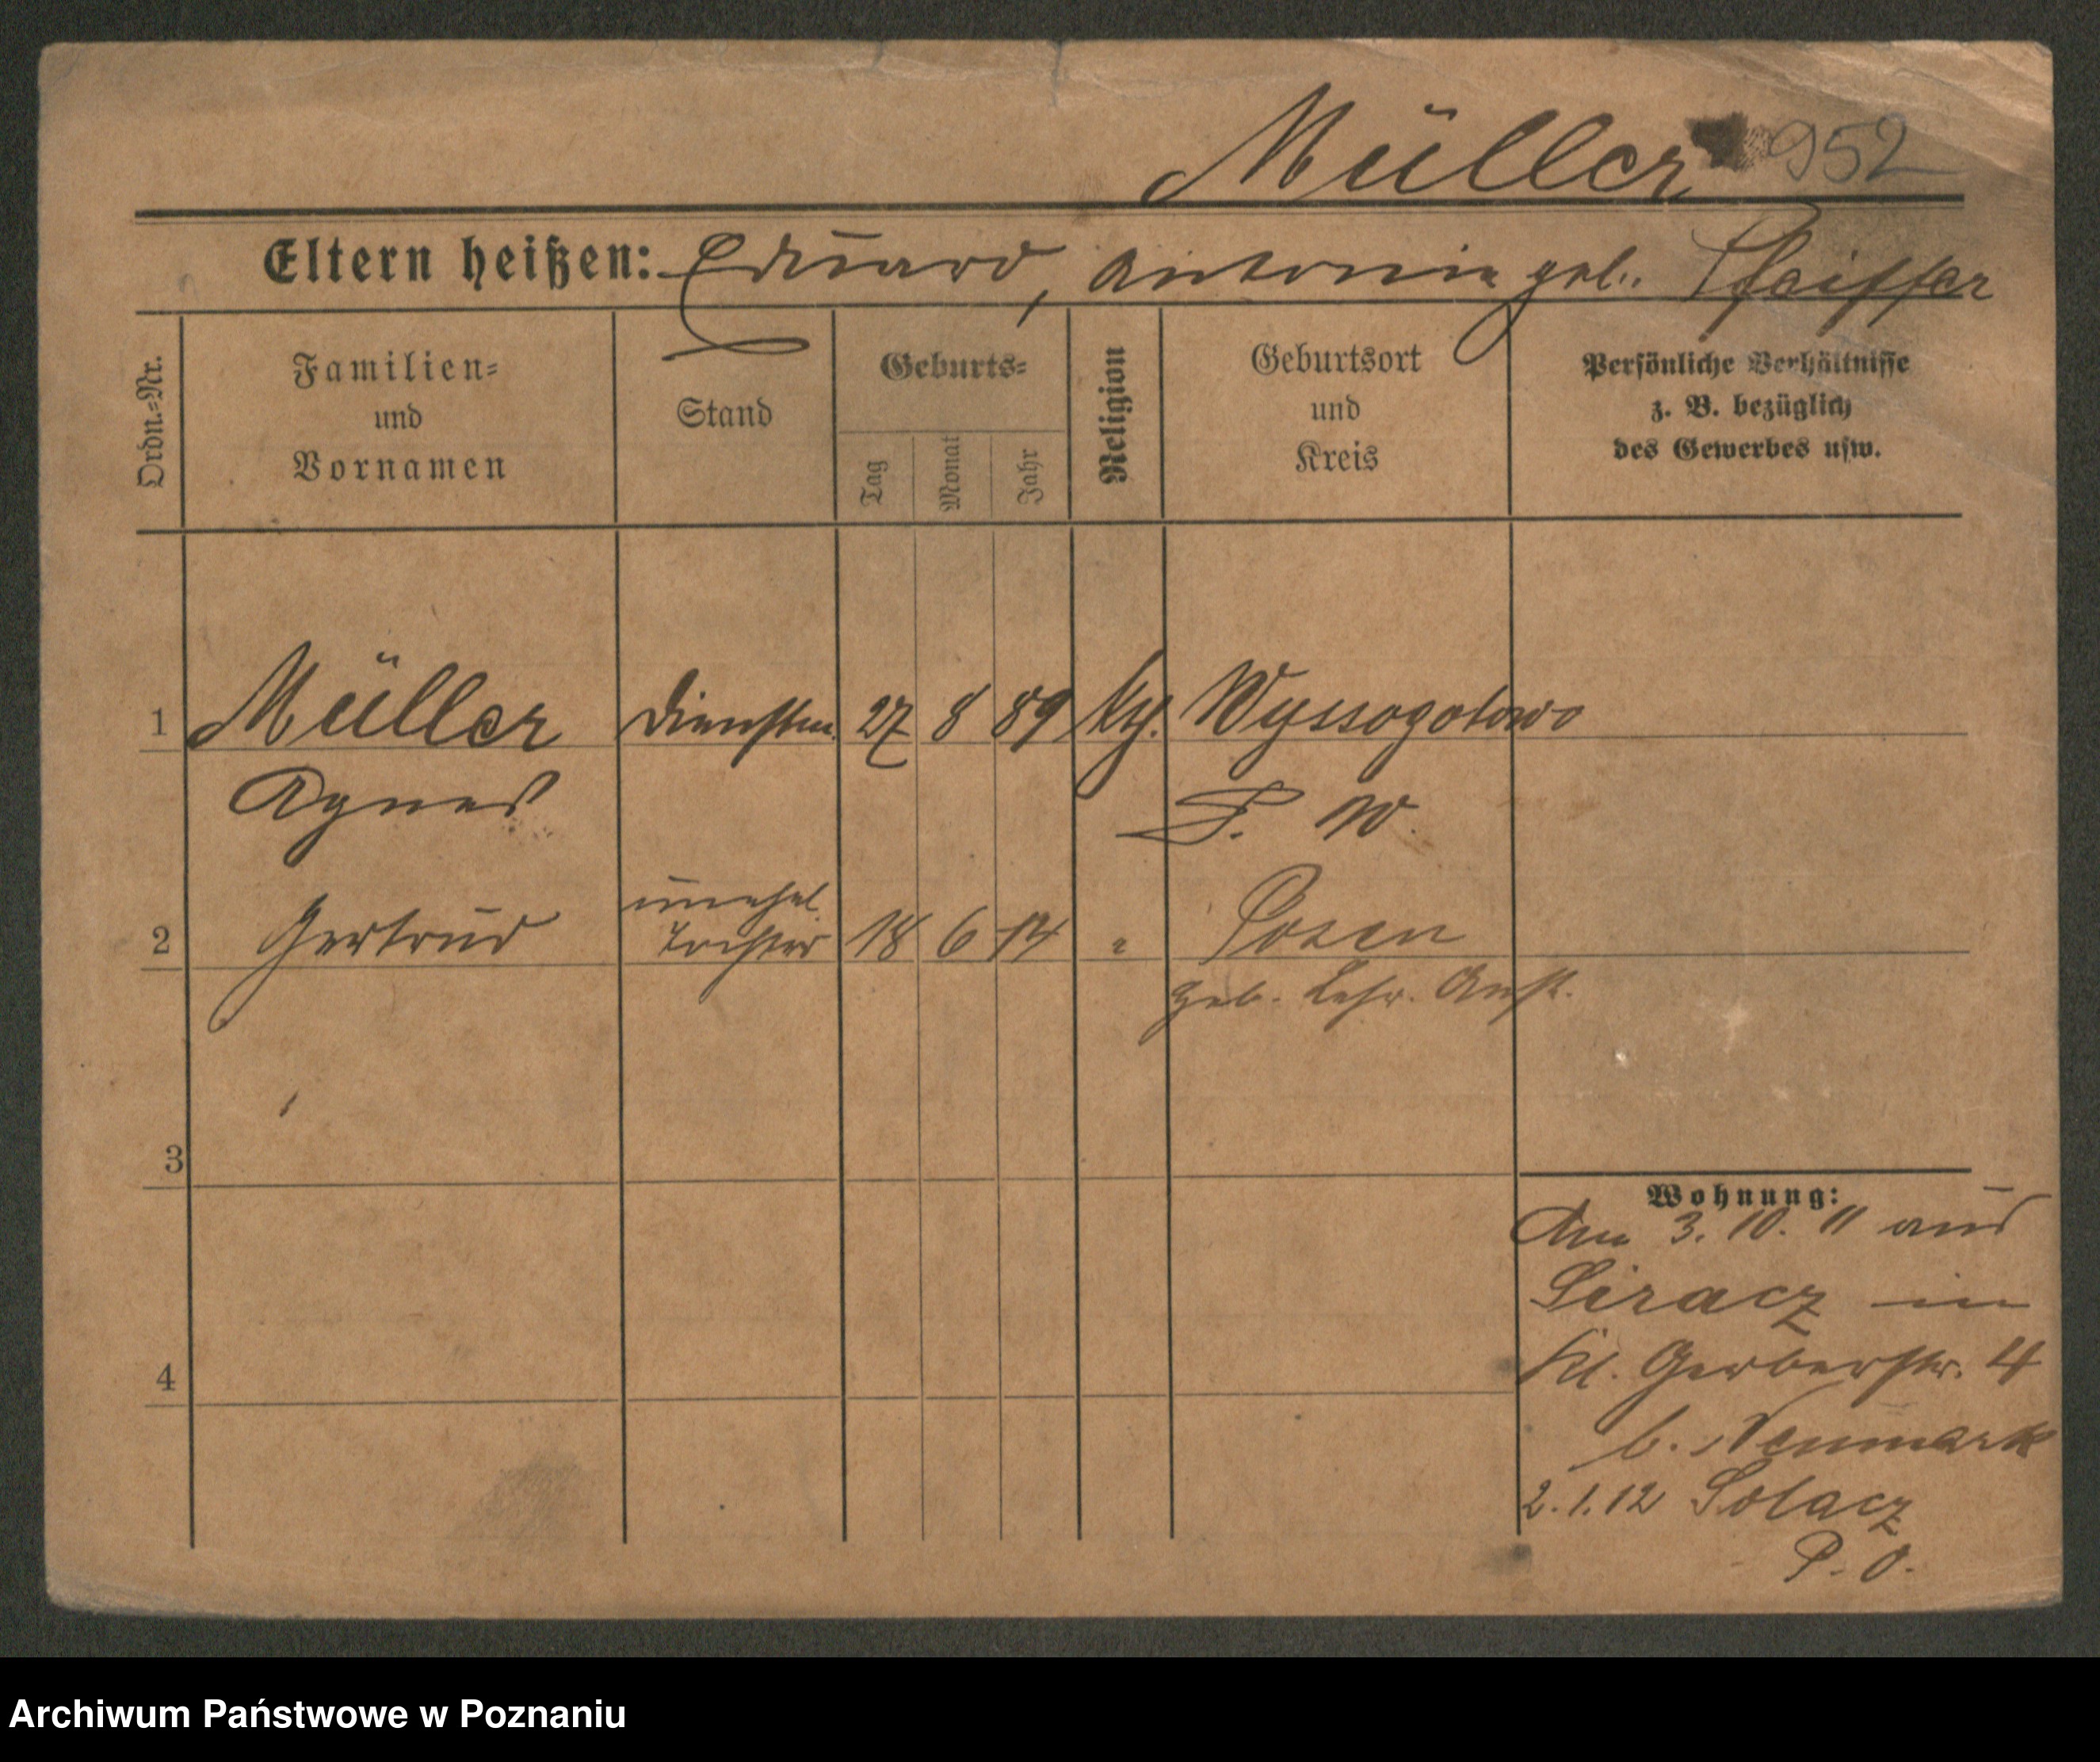 Müller 952
Eltern heißen: Eduard, Antonie geb. Pfeiffer
Ordn.-Nr.
Familien-
und
Vornamen
Stand
Geburts-
Tag
Monat
Jahr
Religion
Geburtsort
und
Kreis
Persönliche Verhältnisse
z. B. bezüglich
des Gewerbes usw.
1 Müller Dienstm. 27 8 89 kth. Wyssogotowo
Agnes P. W.
2 Gertrud unehel. Tochter 18 6 14 " Posen
Heb. Lehr. Anst.
3
4
Wohnung:
Am 3. 10. 11 aus
Siracz in
Kl. Gerberstr. 4
b. Neumark
2.1.12 Solacz
P. O.
Archiwum Państwowe w Poznaniu